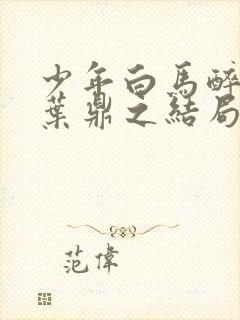 少年白馬醉
葉鼎之結局
范偉